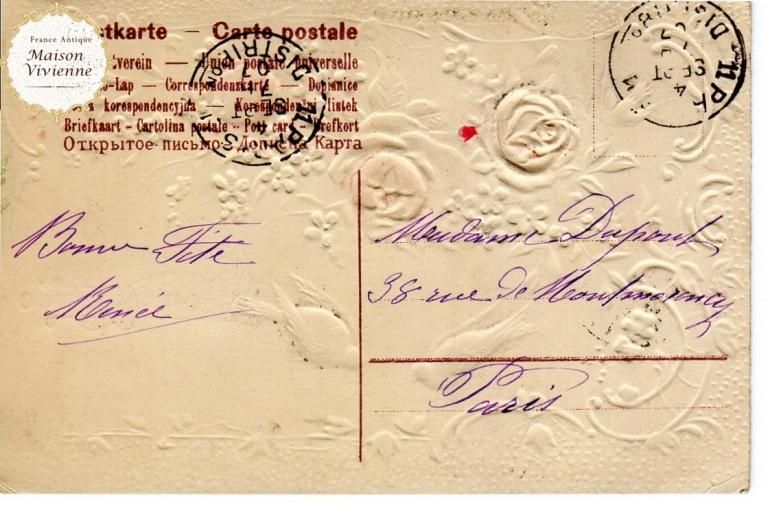 France Antique
Maison
Vivienne
stkarte — Carte postale
verein — Union postale universelle
-Lap — Correspondenzkarte — Dopisnice
korespondencyjna — Korespondenzni listek
Briefkaart - Cartolina postale - Post card - Brefkort
Открытое письмо - Дописна Карта
DISTRIB
SEPT
4
DISTRIB
SEPT
4
Bonne Fête
Renée
Madame Dupont
38 rue de Montmorency
Paris